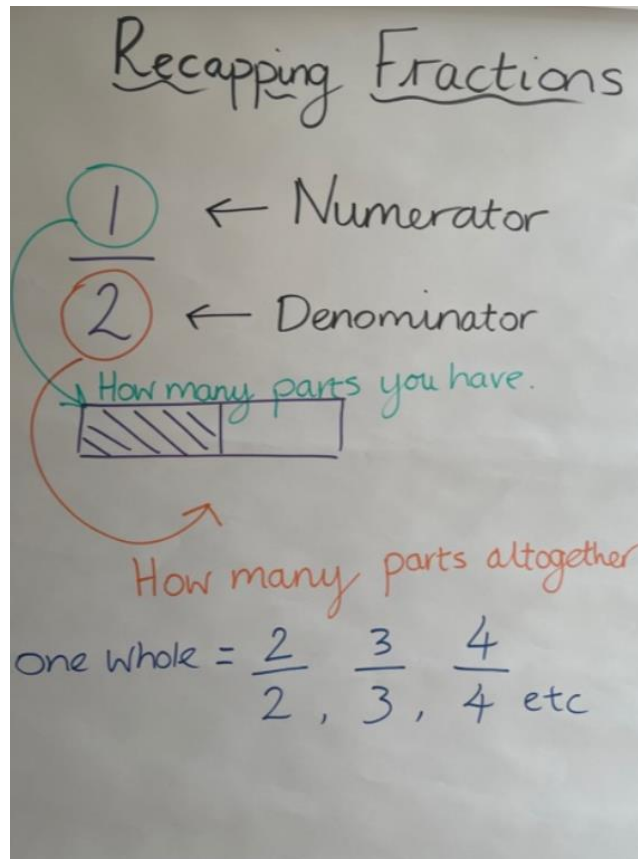 Recapping Fractions
1 ← Numerator
2 ← Denominator
How many parts you have.
How many parts altogether
one whole = 2/2, 3/3, 4/4 etc